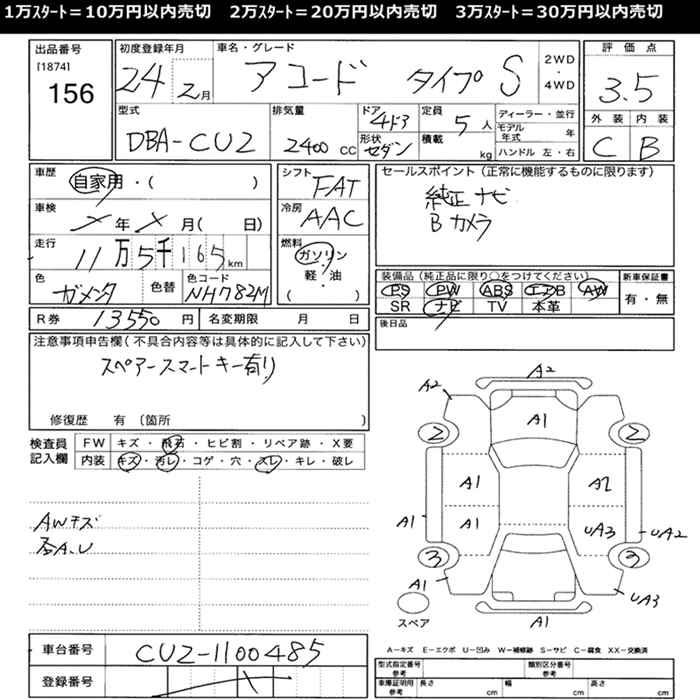 1万ｽﾀｰﾄ＝10万円以内売切 2万ｽﾀｰﾄ＝20万円以内売切 3万ｽﾀｰﾄ＝30万円以内売切
出品番号
[1874]
156
初度登録年月
24 2月
車名・グレード
アコード タイプS
2WD
・
4WD
評価点
3.5
型式
DBA-CU2
排気量
2400 cc
ドア
4ドア
形状
セダン
定員
5人
積載
kg
ディーラー・並行
モデル年式 年
ハンドル 左・右
外装 内装
C B
車歴
自家用・( )
車検
メ年 メ月( 日)
走行
11万5千165km
色
ガメンタ
色替
色コード
NH782M
シフト
FAT
冷房
AAC
燃料
ガソリン
・
軽・油
( )
セールスポイント(正常に機能するものに限ります)
純正ナビ
Bカメラ
装備品(純正品に限り○をつけてください)
PS PW ABS エアB AW
SR ナビ TV 本革
新車保証書
有・無
R券 13550円 名変期限 月 日
後日品
注意事項申告欄(不具合内容等は具体的に記入して下さい)
スペアースマートキー有り
修復歴 有(箇所 )
検査員記入欄
FW キズ・飛石・ヒビ割・リペア跡・X要
内装 キズ・汚レ・コゲ・穴・スレ・キレ・破レ
AWキズ
各A.U
A2
A2
A1
2 2
A1 A2
A1 A1 UA3 UA2
3 3
A1 UA3
A1
スペア
A－キズ E－エクボ U－凹み W－補修跡 S－サビ C－腐食 XX－交換済
車台番号 CU2-1100485
登録番号
型式指定番号 参考
類別区分番号 参考
車庫証明用 参考
長さ cm 幅 cm 高さ cm